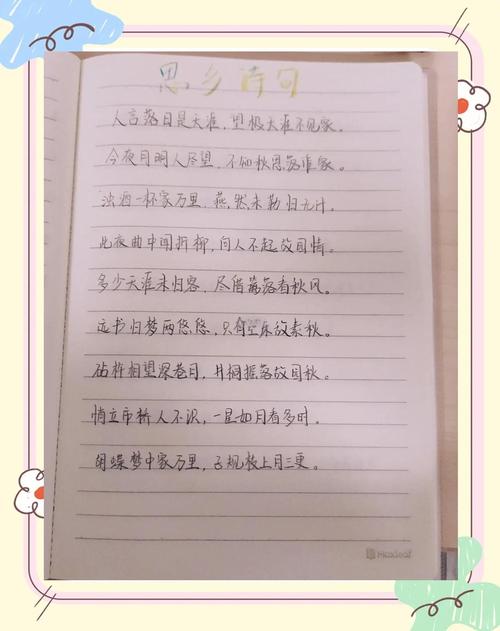 思乡诗句
人言落日是天涯，望极天涯不见家。
今夜月明人尽望，不知秋思落谁家。
浊酒一杯家万里，燕然未勒归无计。
此夜曲中闻折柳，何人不起故园情。
多少天涯未归客，尽借篱落看秋风。
远书归梦两悠悠，只有空床敌素秋。
砧杵相望深巷月，井桐摇落故园秋。
悄立市桥人不识，一星如月看多时。
胡蝶梦中家万里，子规枝上月三更。
Maxleaf